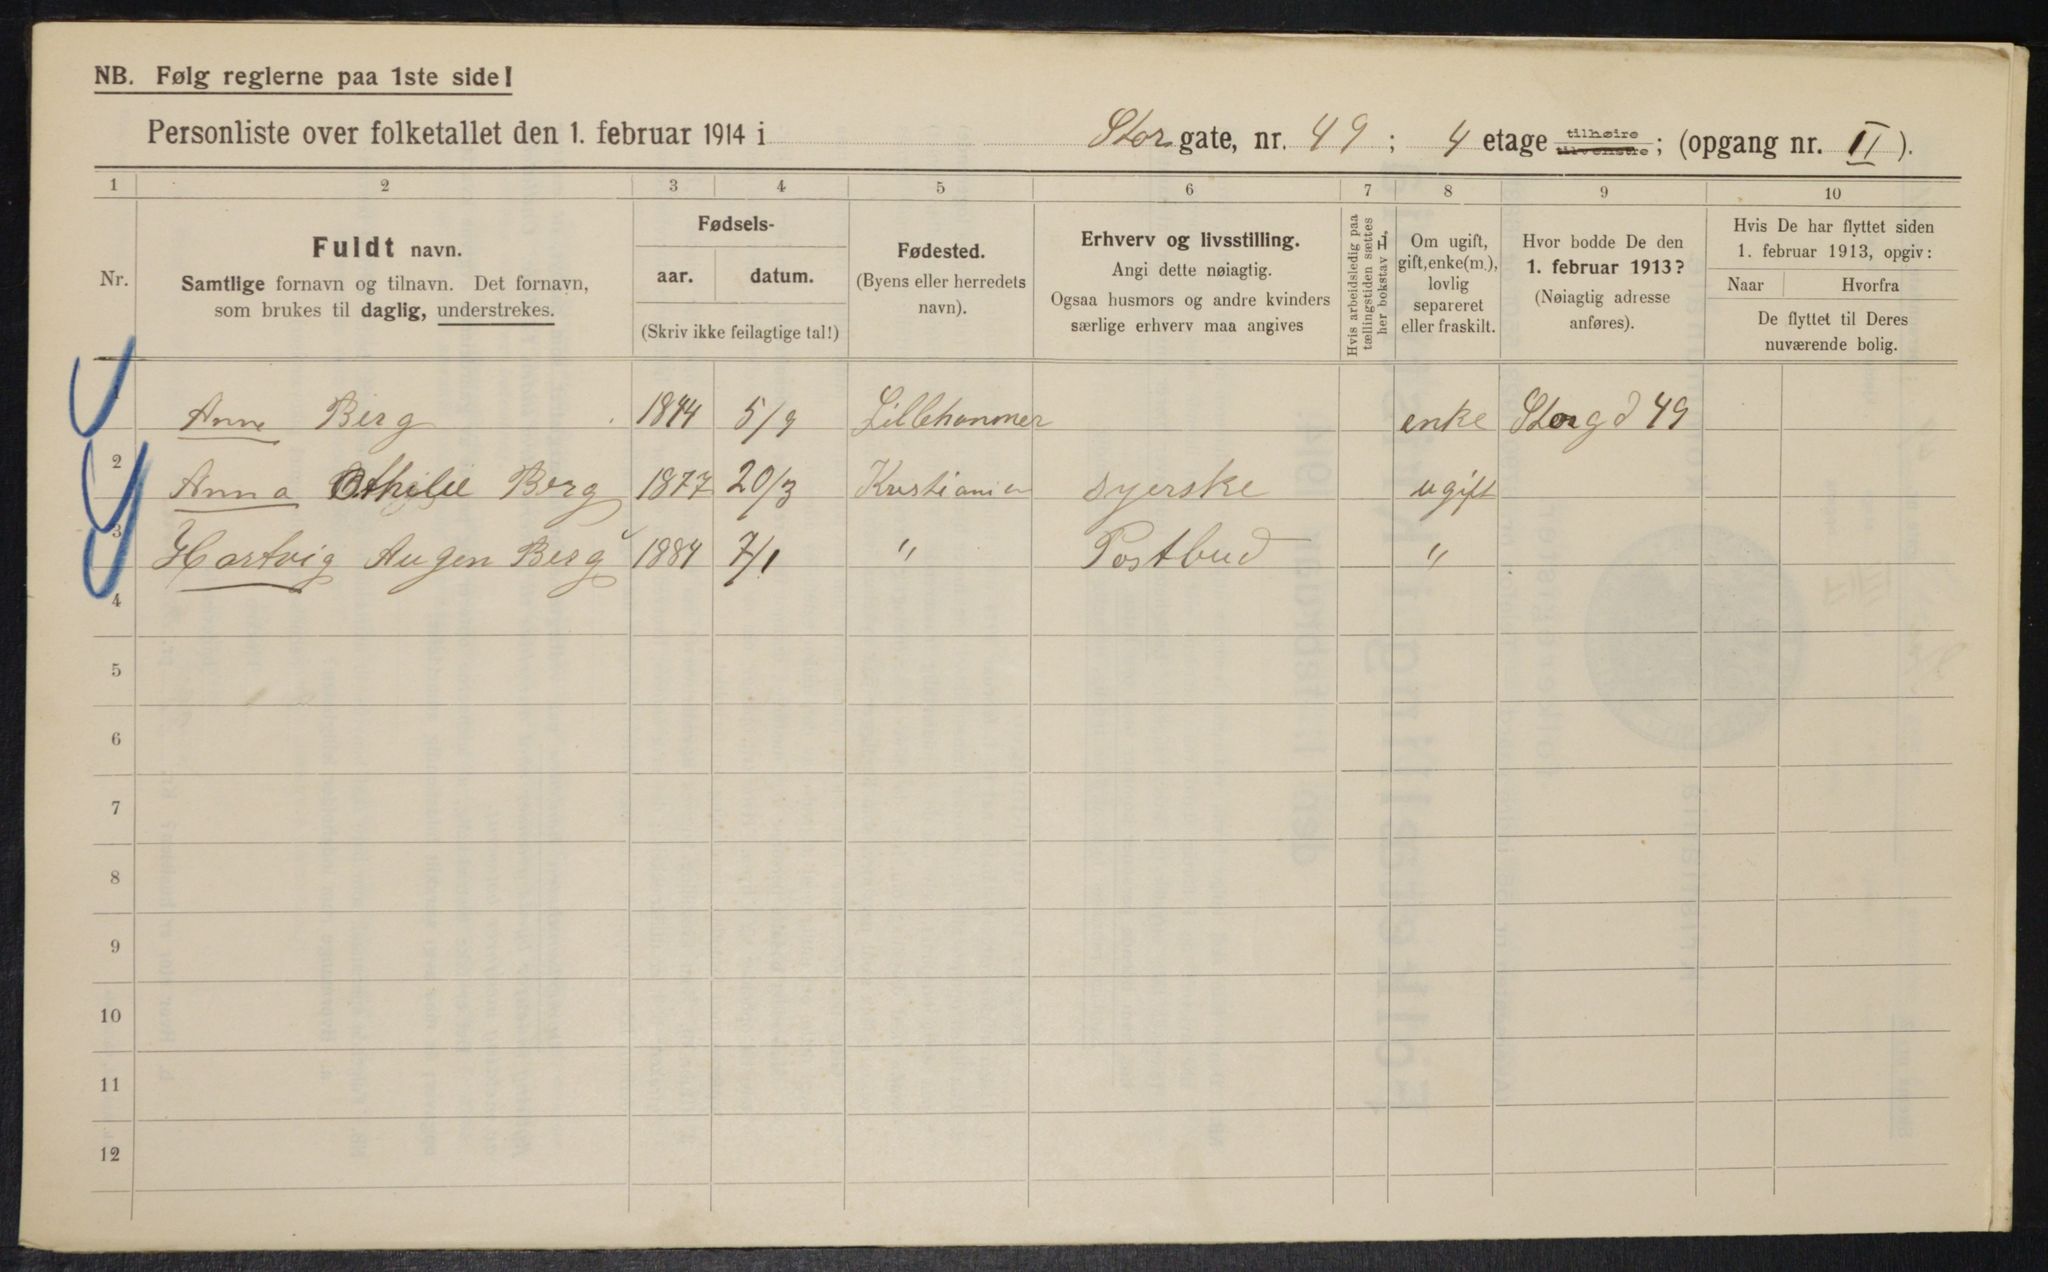 NB. Følg reglerne paa 1ste side!
Personliste over folketallet den 1. februar 1914 i Storgate, nr. 49; 4 etage tilhøire tilvenstre; (opgang nr. II).
1 2 3 4 5 6 7 8 9 10
Nr.
Fuldt navn.
Samtlige fornavn og tilnavn. Det fornavn,
som brukes til daglig, understrekes.
Fødsels-
aar. datum.
(Skriv ikke feilagtige tal!)
Fødested.
(Byens eller herredets
navn).
Erhverv og livsstilling.
Angi dette nøiagtig.
Ogsaa husmors og andre kvinders
særlige erhverv maa angives
Hvis arbeidsledig paa
tællingstiden sættes
her bokstav L.
Om ugift,
gift, enke(m.),
lovlig
separeret
eller fraskilt.
Hvor bodde De den
1. februar 1913?
(Nøiagtig adresse
anføres).
Hvis De har flyttet siden
1. februar 1913, opgiv:
Naar Hvorfra
De flyttet til Deres
nuværende bolig.
1 Anne Berg 1844 5/9 Lillehammer enke Storgd 49
2 Anna Othilie Berg 1877 20/3 Kristiania syerske ugift
3 Hartvig Augen Berg 1884 7/1 " Postbud "
4
5
6
7
8
9
10
11
12